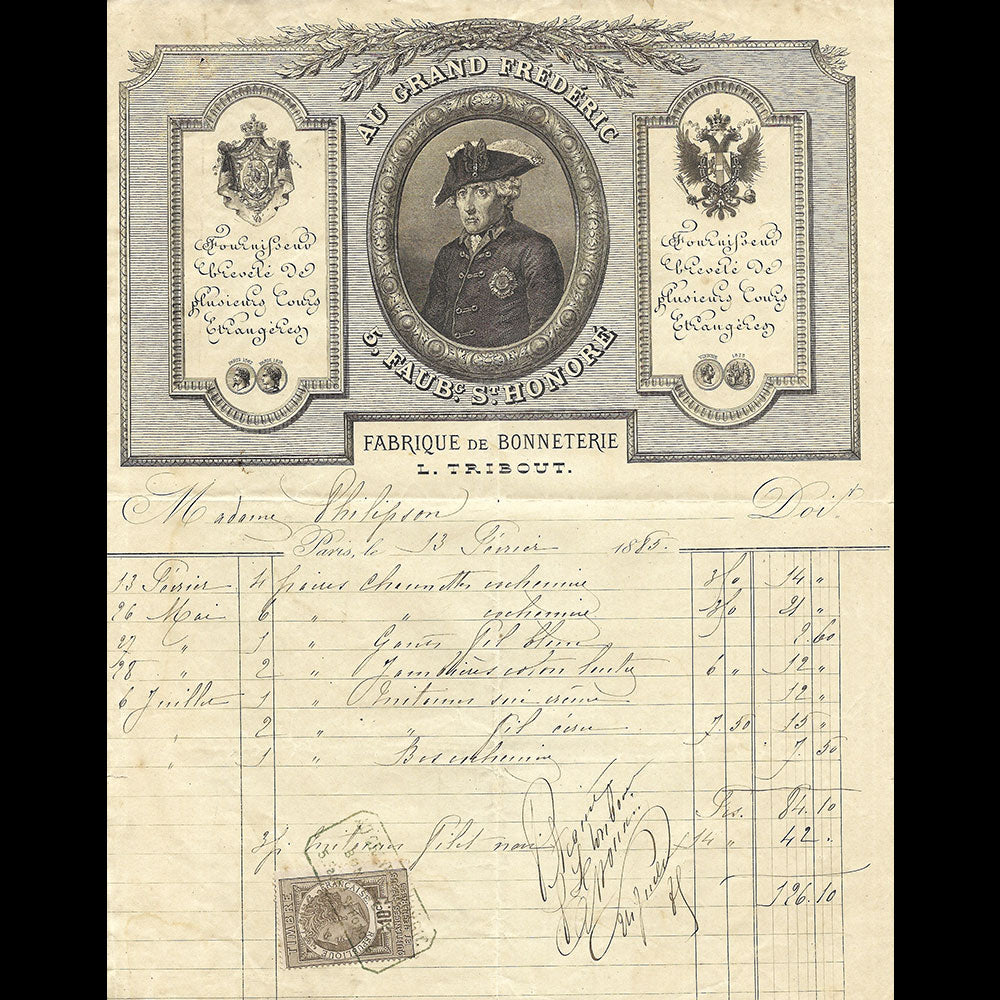 AU GRAND FRÉDÉRIC
Fournisseur
breveté de
plusieurs Cours
Etrangères
PARIS 1867 PARIS 1878
Fournisseur
breveté de
plusieurs Cours
Etrangères
1873
5, FAUBG. ST. HONORÉ
FABRIQUE DE BONNETERIE
L. TRIBOUT.
Madame Philipson Doit
Paris, le 13 Février 1885.
13 Février 4 paires chaussettes cachemire 3/50 14 "
26 Mai 6 " cachemire 3/50 21 "
27 " 1 " Gants fil blanc 2.60
28 " 2 " Jambières coton 6 " 12 "
6 Juillet 1 " Mitaines soie crème 12 "
2 " " fil écru 7.50 15 "
" 1 " Bas cachemire 7.50
Frs. 84.10
3/p mitaines filet noir 14 " 42.
126.10
TIMBRE
FRANÇAISE
10c
QUITTANCES REÇUS
ET DÉCHARGES